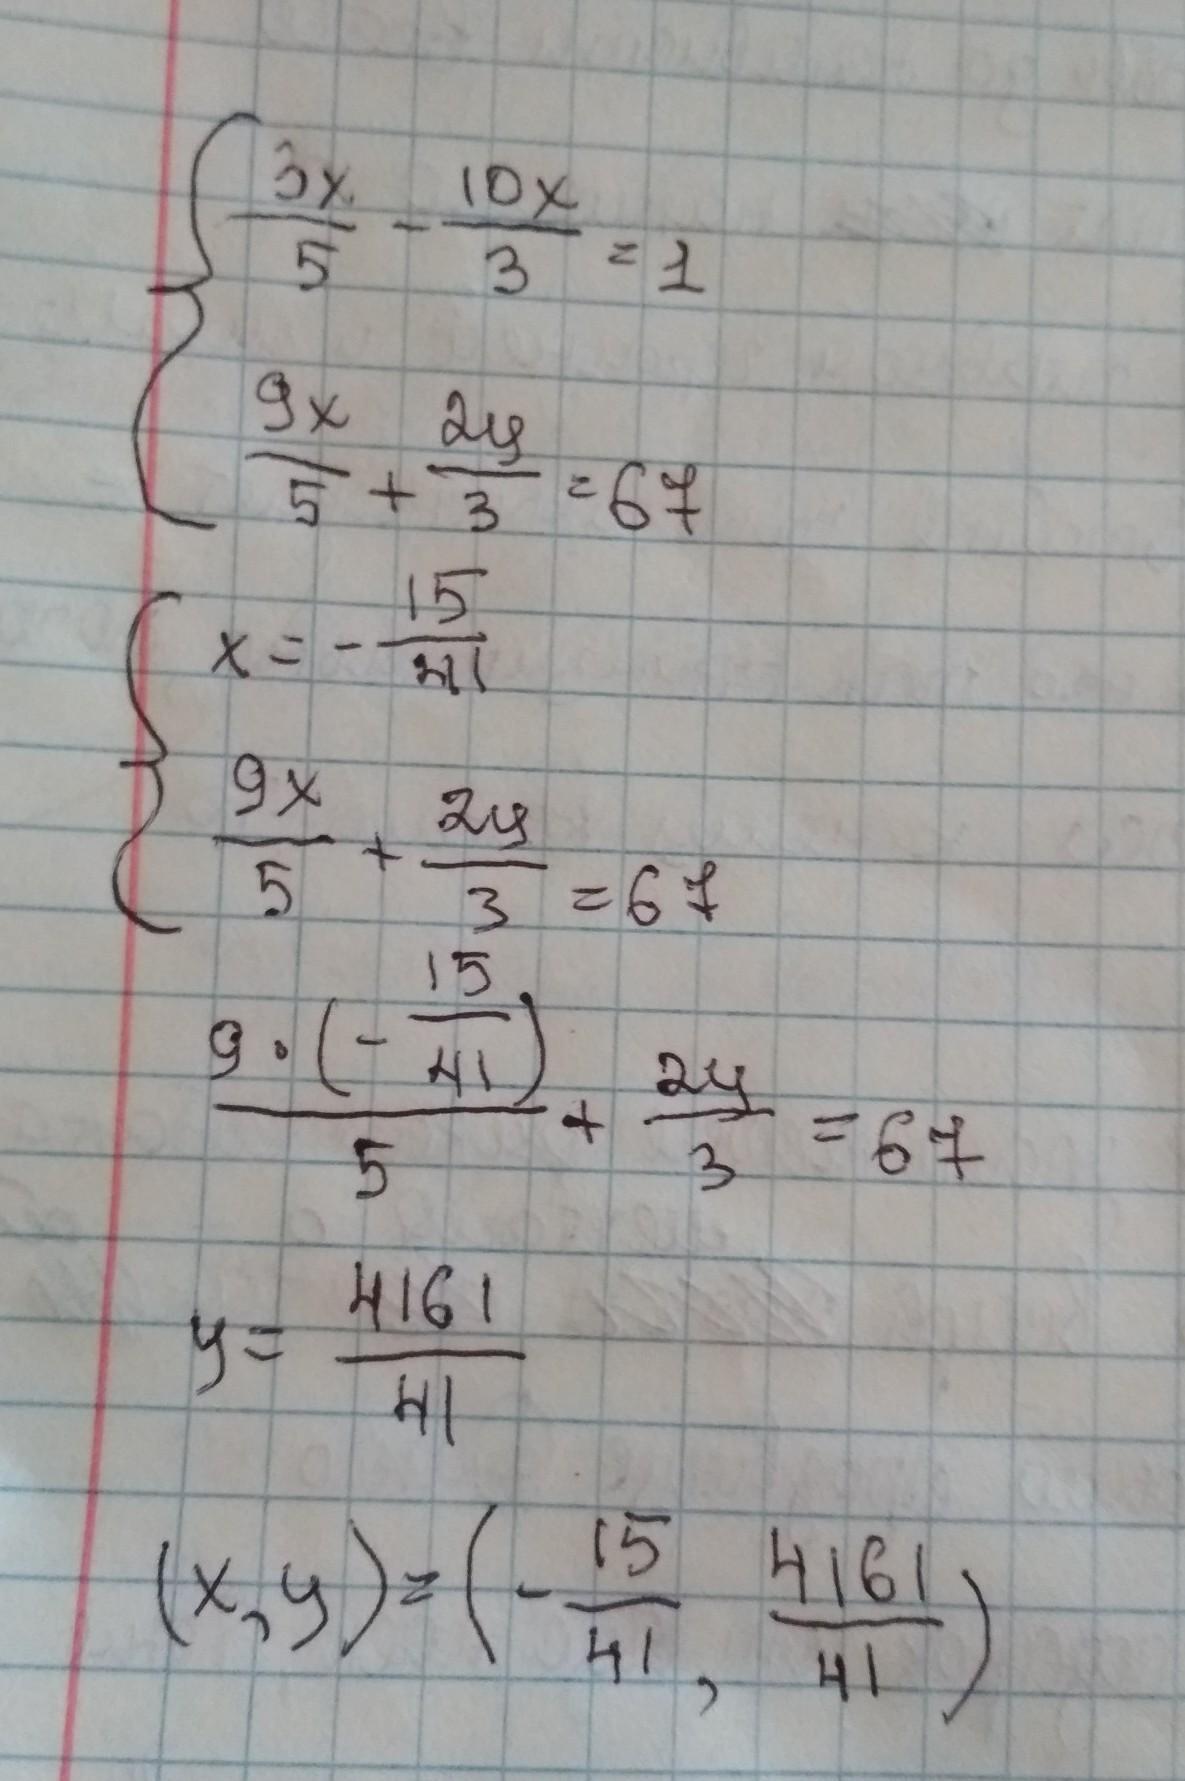 3x/5 - 10x/3 = 1
9x/5 + 2y/3 = 67
x = - 15/41
9x/5 + 2y/3 = 67
9 · (- 15/41)/5 + 2y/3 = 67
y = 4161/41
(x, y) = (- 15/41, 4161/41)